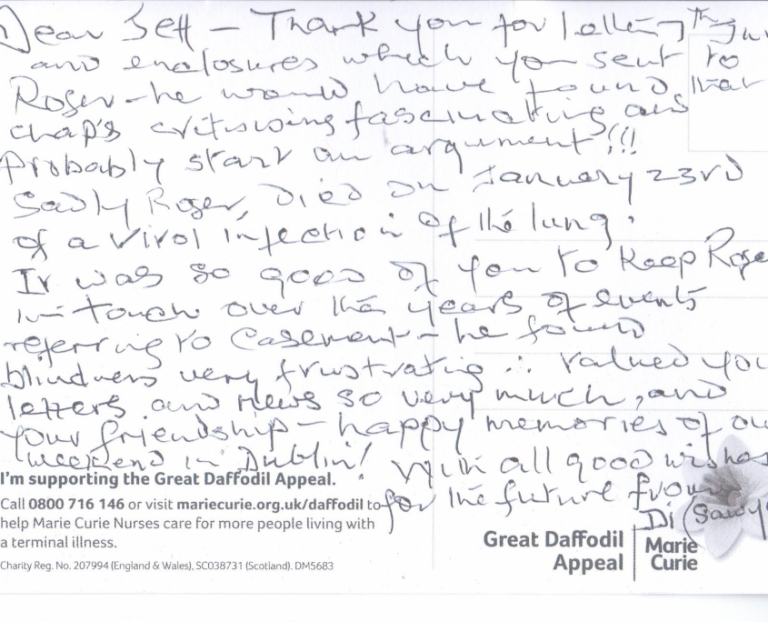 Dear Jeff – Thank you for letter
and enclosures which you sent to
Roger – he would have found that
chap's critisising fascinating and
probably start an argument!!!
Sadly Roger, Died on January 23rd
of a Virol infection of the lung.
It was so good of you to keep Roge
in touch over the years of events
referring to Casement – he found
blindness very frustrating ∴ valued you
letters and news so very much, and
your friendship – happy memories of ou
weekend in Dublin! With all good wishes
for the future from
Di (Sawy
I'm supporting the Great Daffodil Appeal.
Call 0800 716 146 or visit mariecurie.org.uk/daffodil to
help Marie Curie Nurses care for more people living with
a terminal illness.
Charity Reg. No. 207994 (England & Wales), SC038731 (Scotland). DM5683
Great Daffodil
Appeal
Marie
Curie